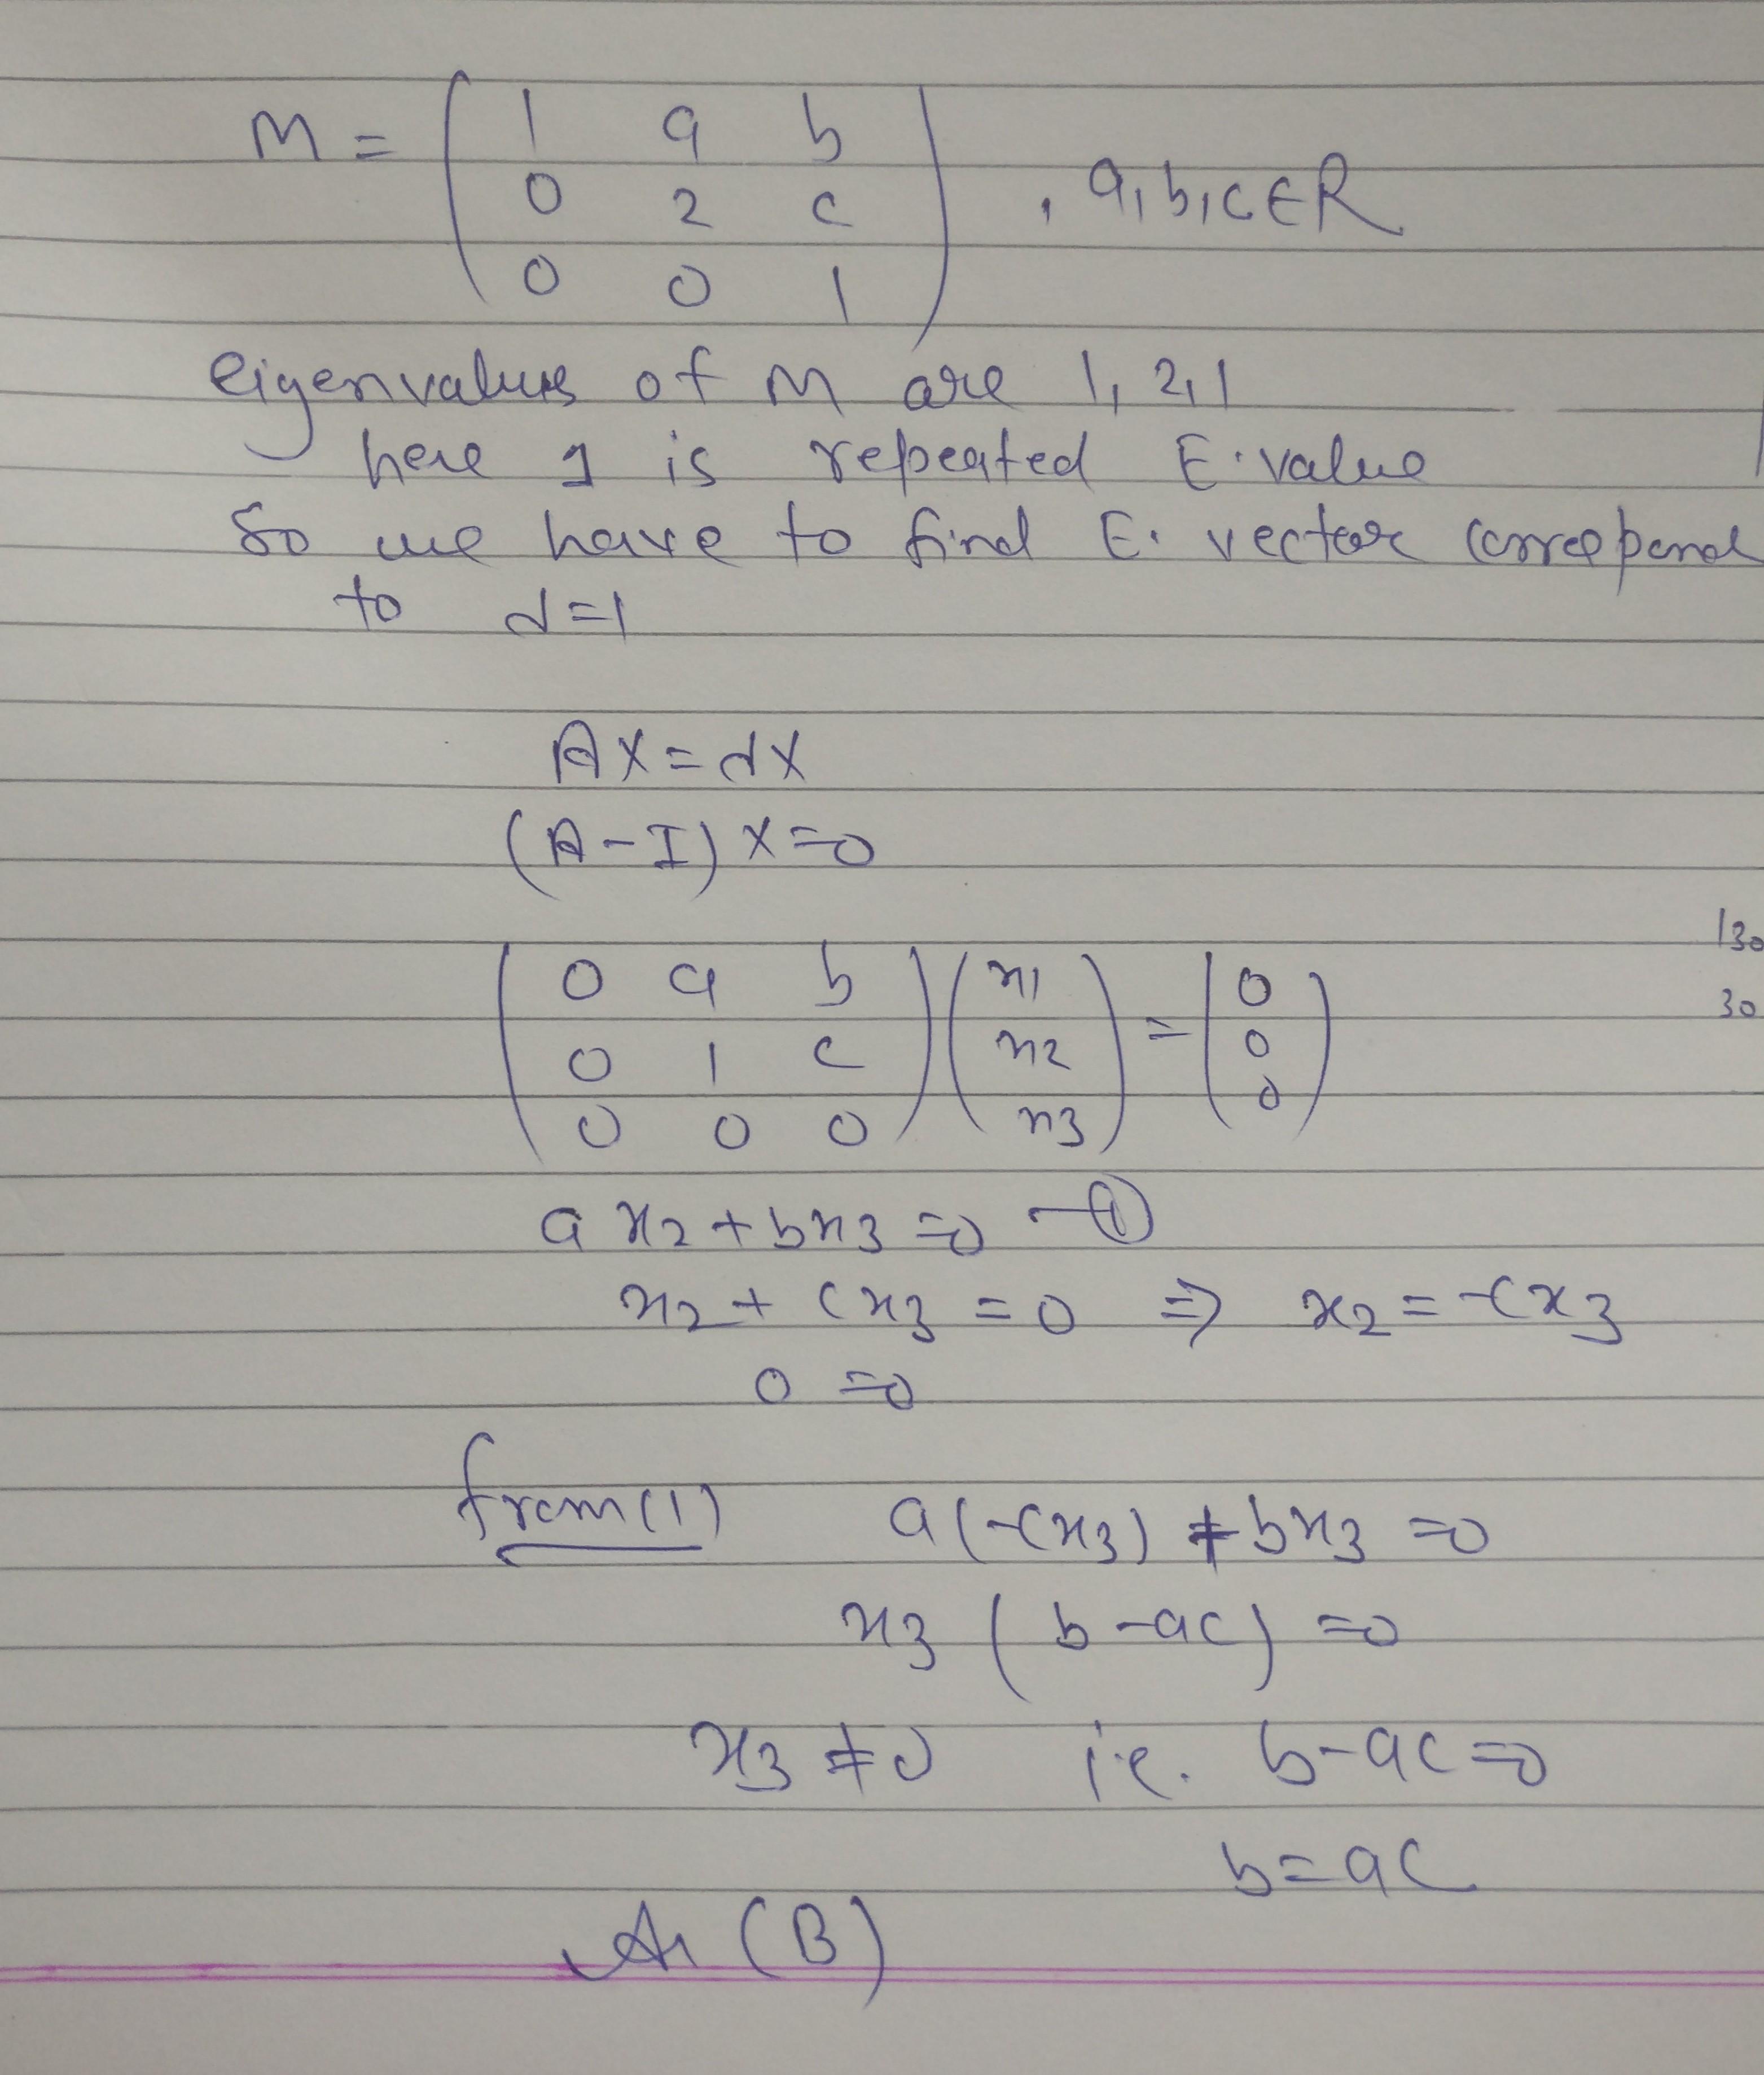 M = ( 1 a b
0 2 c
0 0 1 ) , a, b, c ∈ R
eigenvalues of M are 1, 2, 1
here 1 is repeated E. value
So we have to find E. vector correspond
to λ=1
AX = λX
(A - I) X = 0
130
( 0 a b
0 1 c
0 0 0 ) ( x1
x2
x3 ) = ( 0
0
0 )
30
a x2 + b x3 = 0 — (1)
x2 + c x3 = 0 ⇒ x2 = -c x3
0 = 0
from (1) a(-c x3) + b x3 = 0
x3 ( b - ac ) = 0
x3 ≠ 0 i.e. b - ac = 0
b = ac
(B)